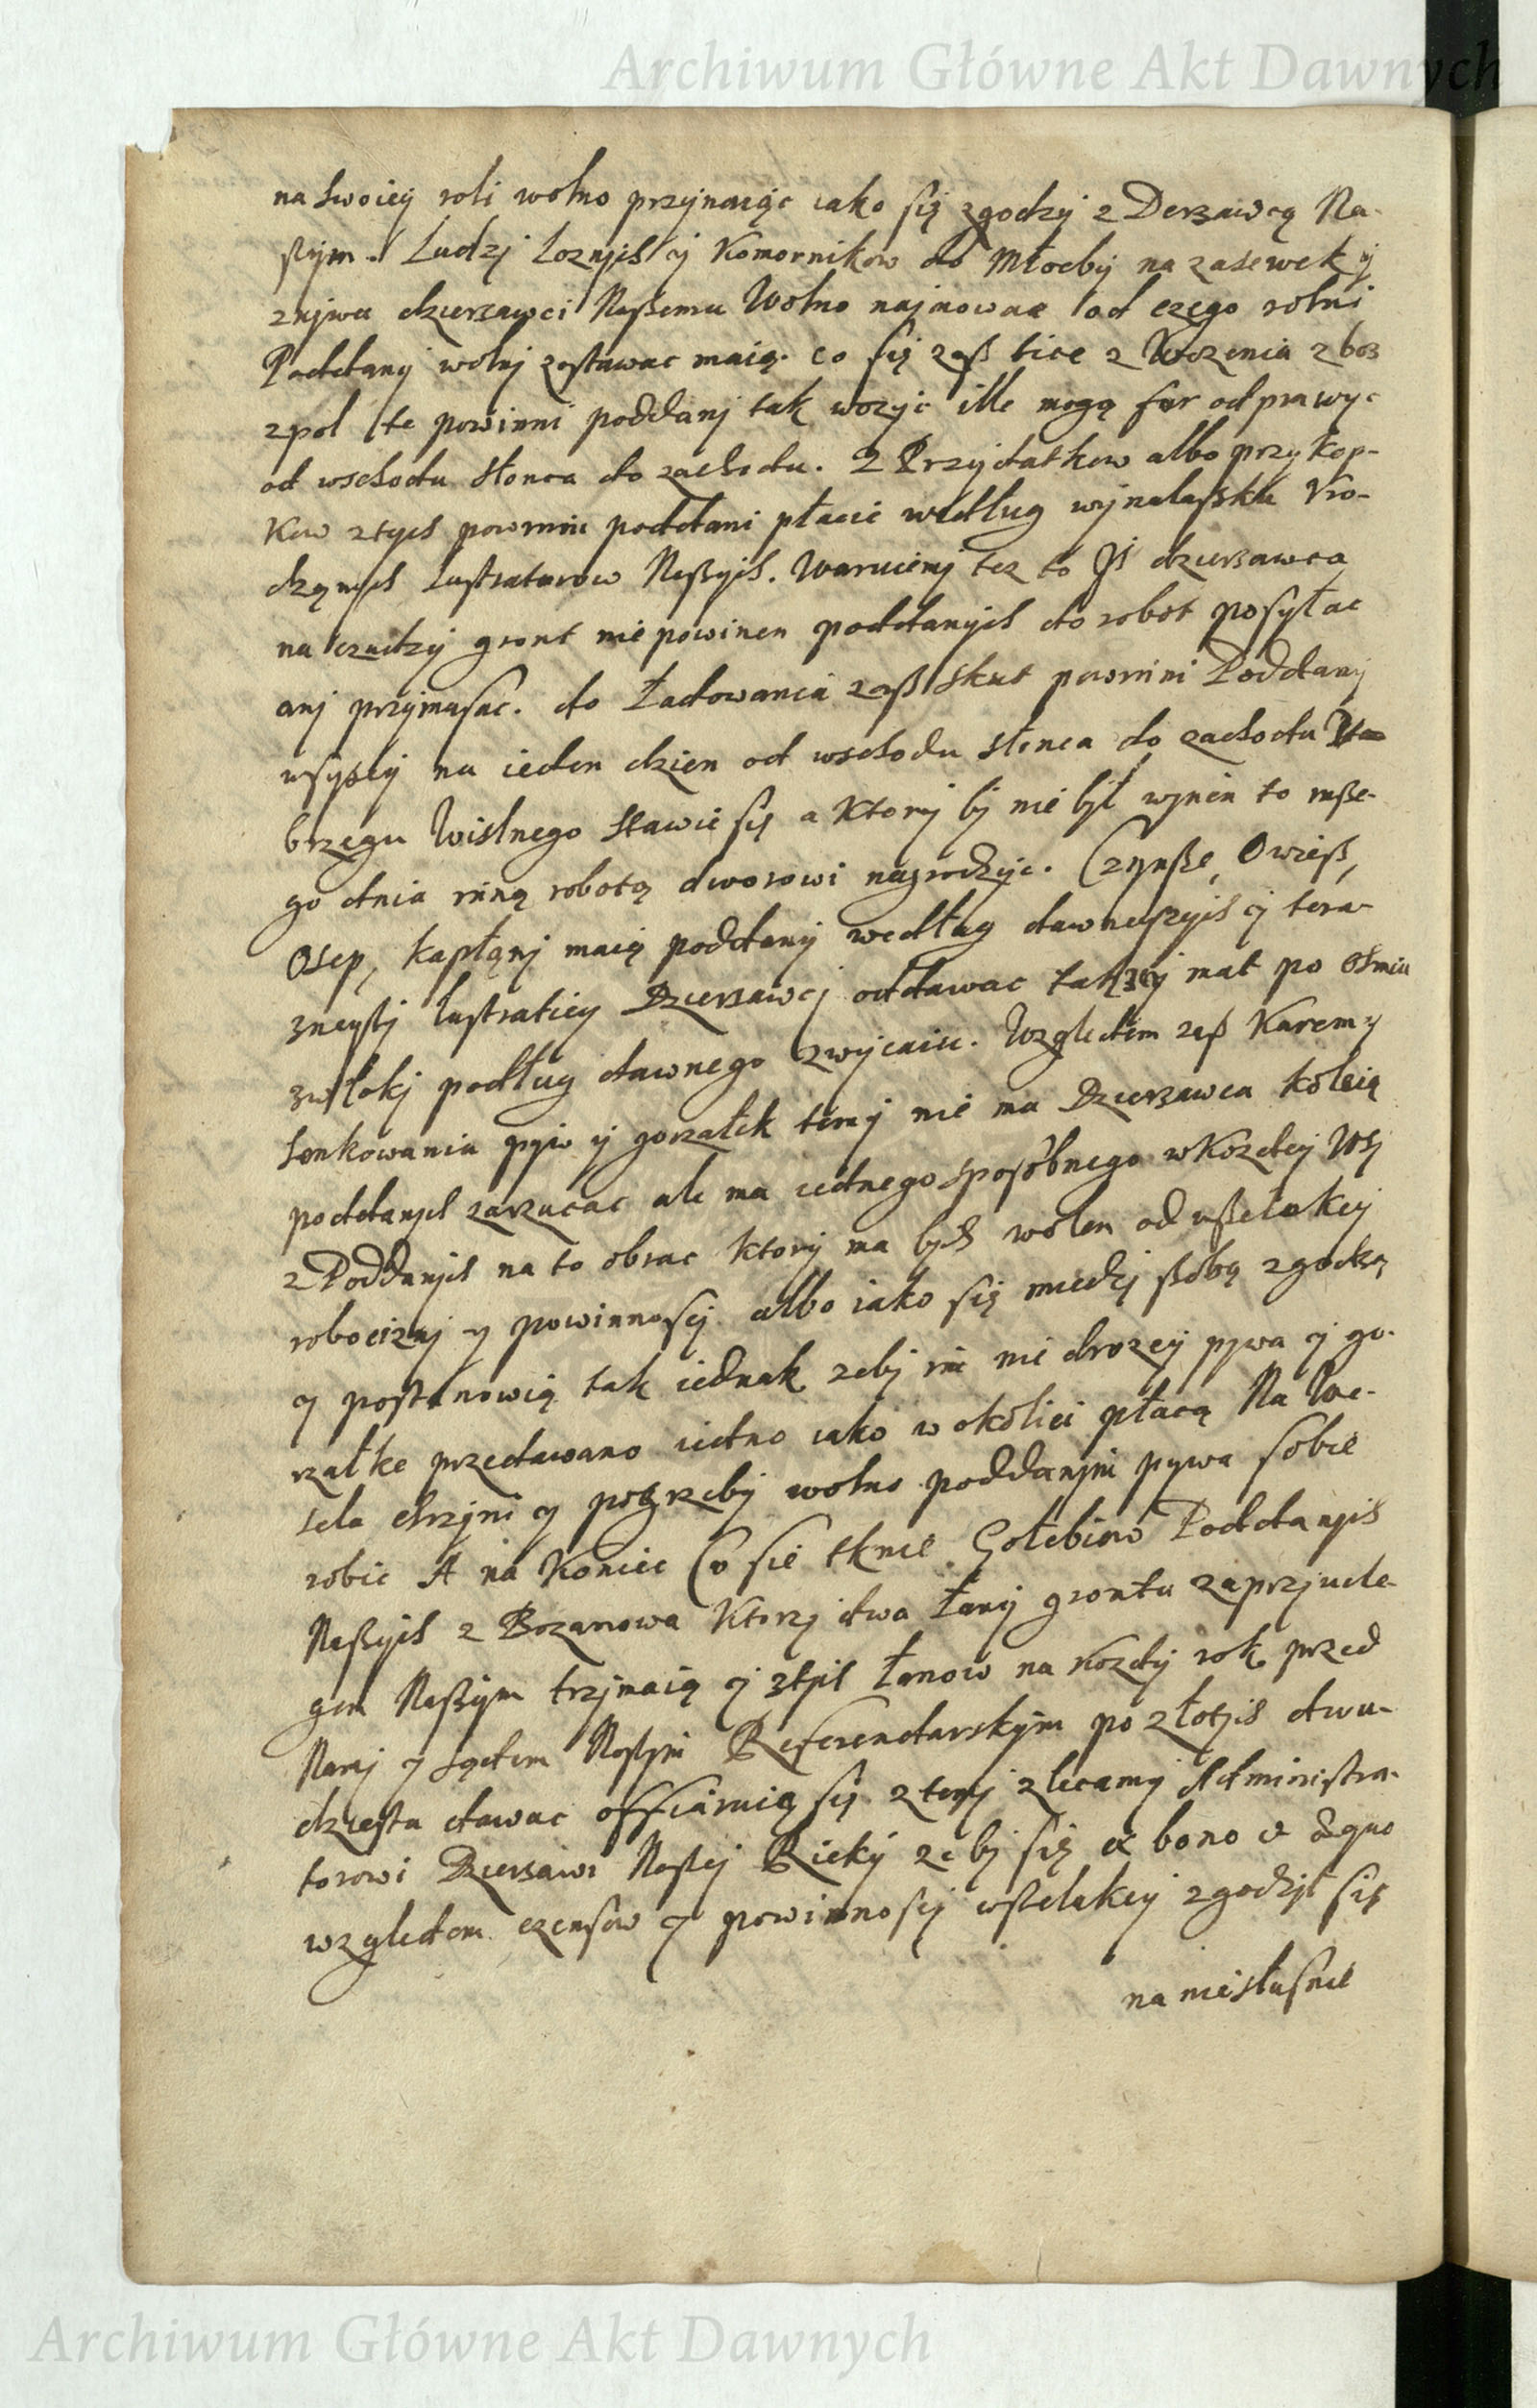 Archiwum Główne Akt Dawnych
na swoiey roli wolno przynaiąc iako się zgodzy z Derzawcą Na-
szym. Ludzj loznych y Komornikow do Młocby na zasewek y
znjwa dzierzawcj Naszemu Wolno najmowac od czego rolni
Poddanj wolnj zostawac maią. co się zaß ticze z Wozenia zboz
z pol te powinni poddanj tak wozyc ille mogą fur odprawyc
od wschodu słonca do zachodu. Z Przydatkow albo przykop-
kow z tych powinni poddani płacic według wynalasku Vro-
dząnych lustratorow Naszych. Waruiemj tez to Jß dzierzawca
na czudzy gront nie powinen poddanych do robot posyłac
anj przymusac. do Ładowania zaß skut powinni Poddanj
wszyscy na ieden dzien od wschodu słonca do zachodu
brzegu Wislnego stawic się a ktorj bj nie był winien to insze-
go dnia inną robotą dworowi nagrodzyc. Czynsze, Owieß,
Osep, kapłąnj maią poddanj według dawneyszych y tera-
zneyszj lustratiey Dzierzawcj oddawac takzej mat po osmiu
z włokj podług dawnego zwycaiu. Względem zaß Karczmy
szenkowania pyw y gorzałek temj nie ma Dzierzawca koleią
poddanych zarzucac ale ma iednego sposobnego w kozdey Wsj
z Poddanych na to obrac ktorj ma bydz wolen od wszelakiey
robociznj y powinnoscj albo iako się miedzj sobą zgodzą
y postanowią tak iednak zebj im nie drozey pywa y go-
rzałke przedawano iedno iako w okolici płacą Na We-
sela chrzjni y pogrzeby wolno poddanym pywa sobie
robic A na koniec Co sie tknie Gołebiow Poddanych
Naszych z Bozanowa ktorzj dwa Łany grontu za przjwile-
gem Naszym trzjmaią y z tych Łanow na kozdy rok przed
Namj y sądem Naszym Referendarskim po złotych dwu-
dziestu dawac offiaruią się z temj zlecamy Administra-
torowi Dzierzawi Naszej Rickj ze bj się ex bono et æquo
względem czensow y powinnoscj wszelakiey zgodzjł się
na niesłusne
Archiwum Główne Akt Dawnych